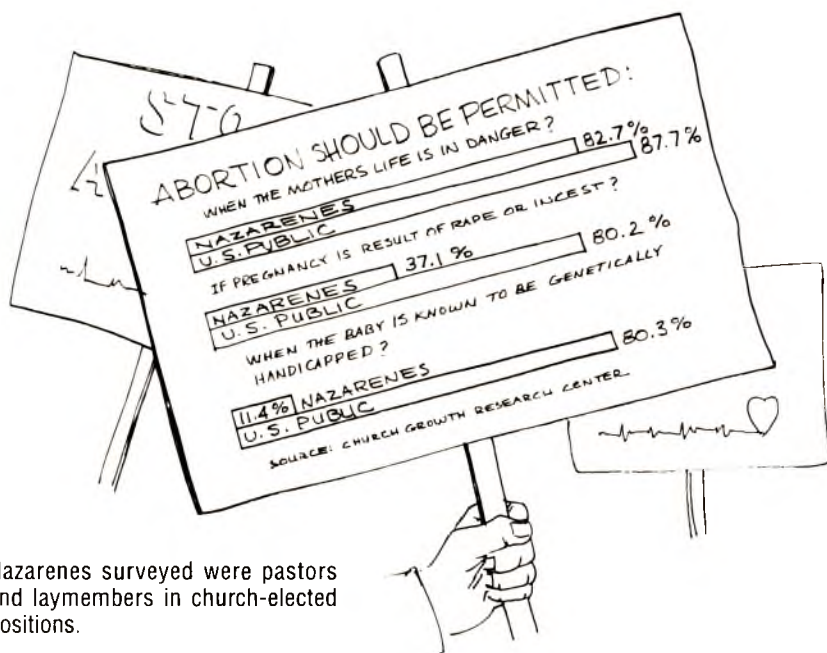 STO
ABORTION SHOULD BE PERMITTED:
WHEN THE MOTHERS LIFE IS IN DANGER?
82.7%
NAZARENES
87.7%
U.S. PUBLIC
IF PREGNANCY IS RESULT OF RAPE OR INCEST?
NAZARENES 37.1%
U.S. PUBLIC 80.2%
WHEN THE BABY IS KNOWN TO BE GENETICALLY
HANDICAPPED?
11.4% NAZARENES
U.S. PUBLIC 80.3%
SOURCE: CHURCH GROWTH RESEARCH CENTER
Nazarenes surveyed were pastors
and laymembers in church-elected
positions.